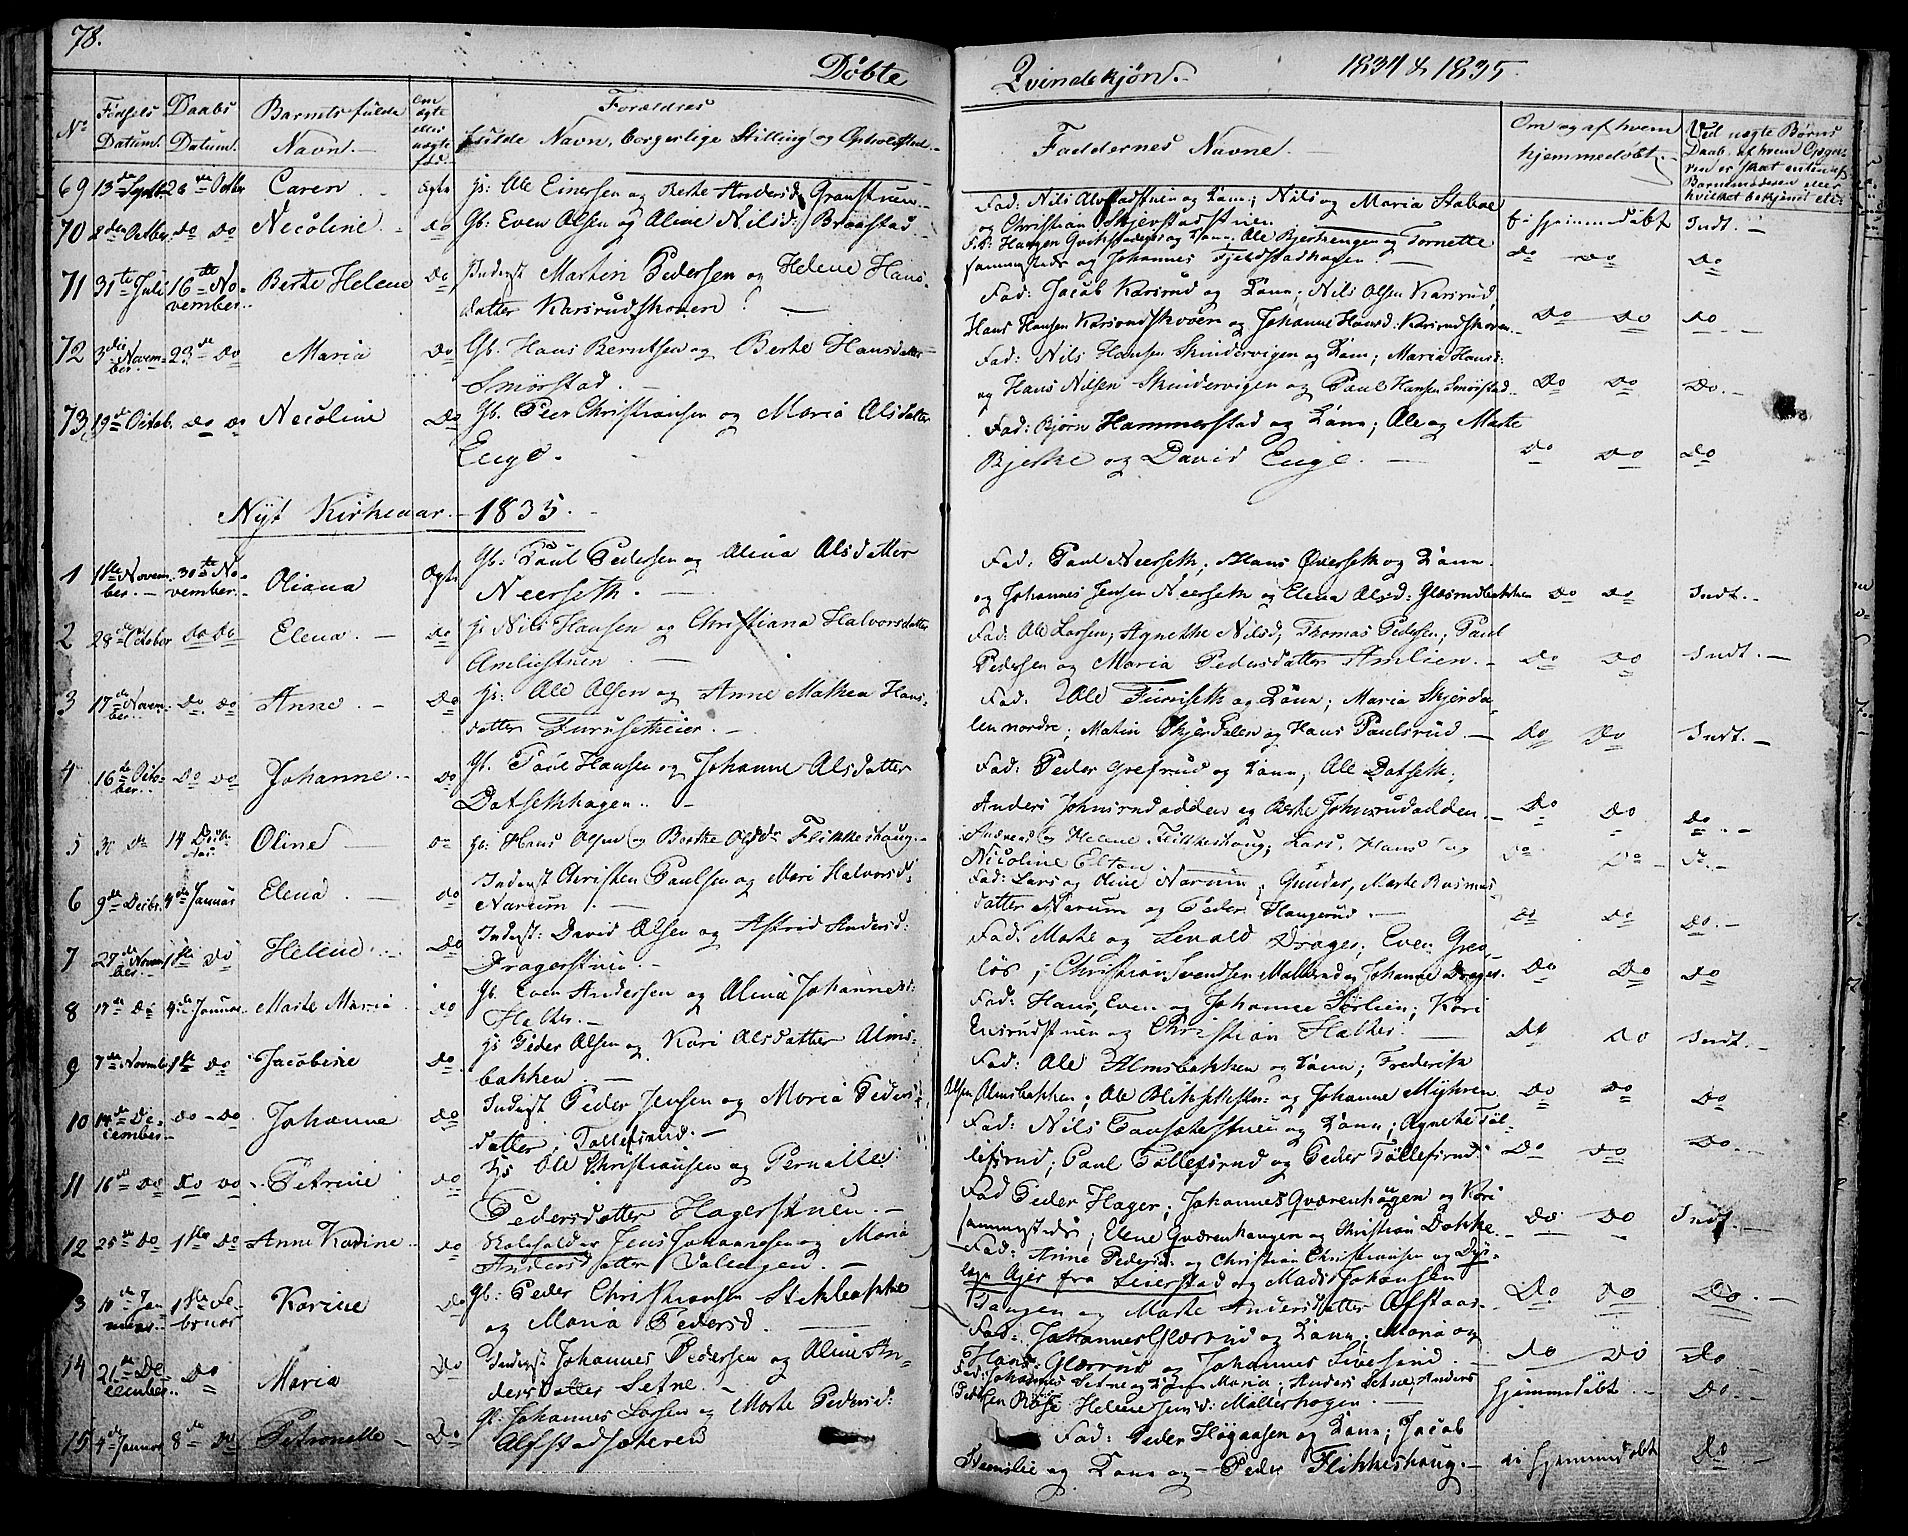 78.
Døbte Qvindekjøn.- 1834 & 1835.
No Fødsels Datum. Daabs Datum. Barnets fulde Navn. Om ægte eller uægte fød. Forældres fulde Navn, borgerlige Stilling og Opholdsted. Faddernes Navne. Om og af hvem hjemmedøbt. Ved uægte Børns Daab, af hvem
69 13de Septbr 26de Octbr Caren Egte Hs: Ole Einersen og Berte Andersd. Granstuen. Fad: Nils Alvstadstuen og Kone; Nils og Maria Stabae
og Christian Skjerstadstuen. ei hjemmedøbt Indt.
70 8de Octber do do Necoline do Gb: Even Olsen og Oline Nilsd: Braastad Fad: Haagen og Kone; Ole Bjerkengen og Tornette
sammesteds og Johannes Fjeldstadhagen. do do do
71 31te Juli 16de November Berte Helene do Inderst Martin Pedersen og Helene Hansdatter Karsrudskoven. Fad: Jacob Karsrud og Kone; Nils Olsen Karsrud,
Hans Hansen Karsrudskoven og Johanne Hansd: Karsrudskoven. do do do
72 3die November 23de do Maria do Gb. Hans Berntsen og Berte Hansdatter Smørstad. Fad: Nils Hansen Skindervigen og Kone; Maria Hansd:
og Hans Nilsen Skindervigen og Paul Hansen Smørstad. do do do
73 19de Octob. do do Necoline do Gb. Peer Christiansen og Maria Olsdatter Enge. Fad: Bjørn Hammerstad og Kone; Ole og Marte
Bjerke og David Enge. do do do
Nyt Kirkeaar. 1835.
1 1ste November. 30te November. Oliana Ægte Gb: Paul Pedersen og Alina Olsdatter Neerseth. Fad: Paul Neerseth; Hans Øverseth og Kone.
og Johannes Jensen Neerseth og Elena Olsd: Glæsrudbakken do do Indt.
2 28de October do do Elena do Hs Nils Hansen og Christiana Halvorsdatter Amlienstuen Fad: Ole Larsen; Agnethe Nilsd; Thomas Pedersen; Paul
Pedersen og Maria Pedersdatter Amlien. do do Indt.
3 17de November. do do Anne do Hs: Ole Olsen og Anne Mathea Hansdatter Furusetheier. Fad: Ole Furuseth og Kone; Maria Skjerdalen
nordre; Matin Skjerdalen og Hans Paulsrud. do do Indt.
4 16de October do do Johanne do Gb. Paul Hansen og Johanne Olsdatter Datsethhagen. Fad: Peder Grefsrud og Kone; Ole Datseth;
Anders Johnsrudødden og Berte Johnsrudødden. do do do
5 30 do 14 Decbr Oline do Gb: Hans Olsen og Berthe Olsdr Flikkeshaug. Andreas og Helene Flikkeshaug; Lars, Hans og
Nicoline Elton do do do
6 9de Decbr. 4de Januar Elena do Inderst Christen Paulsen og Mari Halvorsd: Narum. Fad: Lars og Oline Narum; Gunder, Marte Rasmusdatter
Narum og Peder Haugerud. do do do.
7 27de November. 1ste do Helene do Inderst: David Olsen og Astrid Andersd: Dragerstuen. Fad. Marte og Levald Drager; Even
Christian Svendsen og Johanne Drager. do do do
8 17de do 4de Januar Marte Maria do Gb. Even Andersen og Alina Johannesd: Halker. Fad: Hans, Even og Johanne Sørlien; Kari
Ensrudstuen og Christian Halker. do do Indt.
9 7de Novemb. 1ste do Jacobine do Hs Peder Olsen og Kari Olsdatter Almsbakken Fad: Ole Almsbakken og Kone; Frederik
Olsen Almsbakken; Ole og Johanne Myhren do do do
10 14de December do - do Johanne do Inderst Peder Jensen og Maria Pedersdatter Tollefsrud. Fad: Nils og Kone; Agnethe Tollefsrud;
Paul Tollefsrud og Peder Tollefsrud do do do.
11 16de do do do Petrine do Hs Ole Christiansen og Pernille Pedersdatter Hagerstuen. Fad Peder Hager; Johannes Qværenhaugen og Kari
sammesteds; Elene Qværenhaugen og Christian Dokke. do do Indt.
12 25de do 1ste do Anne Karine do Jens Johannesen og Maria Andersdatter Fad: Anne Pedersd: og Christian Christiansen
fra Leierstad og Mads Johansen
13 10de Januar 1ste Februar Karine do Gb: Peder Christiansen Stikbakke og Maria Pedersd. Tangen og Marte Andersdatter Alfstad. do do do
14 21de December do Maria do Inderst Johannes Pedersen og Oline Andersdatter Setne. Fad: Johannes Glæsrud og Kone; Maria og
Hans Glæsrud og Johannes Livesind. do do do
Fad: Johannes Setne og Kone Maria; Anders Setne; Anders
Helene Jensd: Møllerhagen. hjemmedøbt. do.
15 4de Januar 8de do Petronelle do Gb. Johannes Larsen og Marte Pedersd: Alfstadsæteren Fad: Peder Høgaasen og Kone; Jacob
og Kone og Peder Flikkeshaug. ei hjemmedøbt do